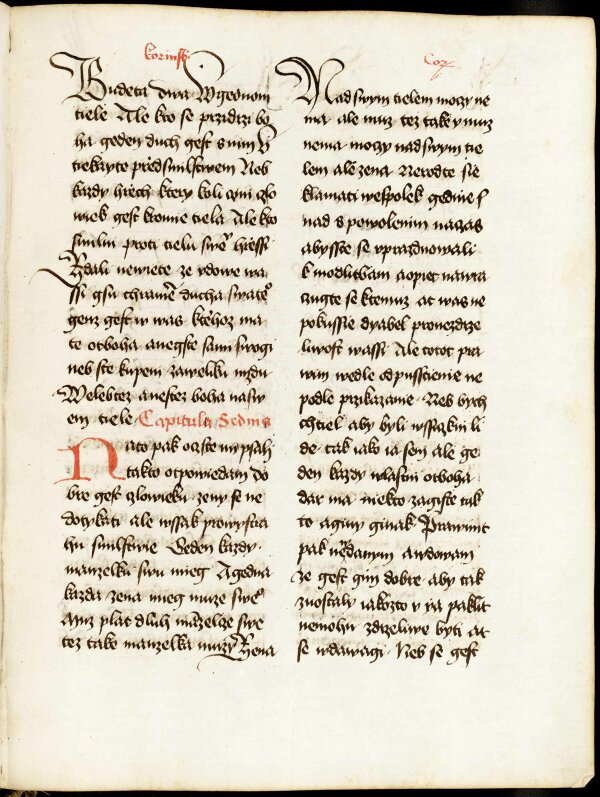 korinth
Budeta dwa w gednom
tiele Ale kto se przidrzi bo
ha geden duch gest s nim U
tiekayte przed smilstwem Neb
kazdy hrzech ktery koli czini czlo
wiek gest kromie tiela Ale kto
smilni proti tielu swe hrzessi
Zdali newiete ze udowe wa
ssi gsu chramem ducha swateho
genz gest w was ktehoz ma
te ot boha a negste sami swogi
neb ste kupeni za weliku mzdu
Welebtez a nestez boha na sw
em tiele Capitula Sedma
Nato pak oczste mi psali
takto otpowiedam Do
bre gest czlowieku zeny se ne
dotykati ale wssak pro wystra
hu smilstwie Geden kazdy
manzelku swu mieg A gedna
kazda zena mieg muze sweho
A muz plat dluh manzelcze swe
tez take manzelka muzy Zena
Cor
Nad swym tielem moczy ne
ma ale muz tez take y muz
nema moczy nad swym tie
lem ale zena Nerodte sie
klamati wespolek gedine s
nad s powolenim na czas
abysste se uprazdnowali
k modlitbam a opiet nawra
czugte se k temuz at was ne
pokussie dyabel pro nezdrze
liwost wassi Ale totot pra
wim wedle odpusstienie ne
podle przikazanie Neb bych
chtiel aby byli wssiczkni li
de tak iako ia sem ale ge
den kazdy wlastni ot boha
dar ma niekto zagiste tak
to a giny ginak Prawimt
pak nezdanym a wdowam
ze gest gim dobre aby tak
zuostaly iakozto y ia paklit
nemohu zdrzeliwe byti at
se wdawagi Neb se gest